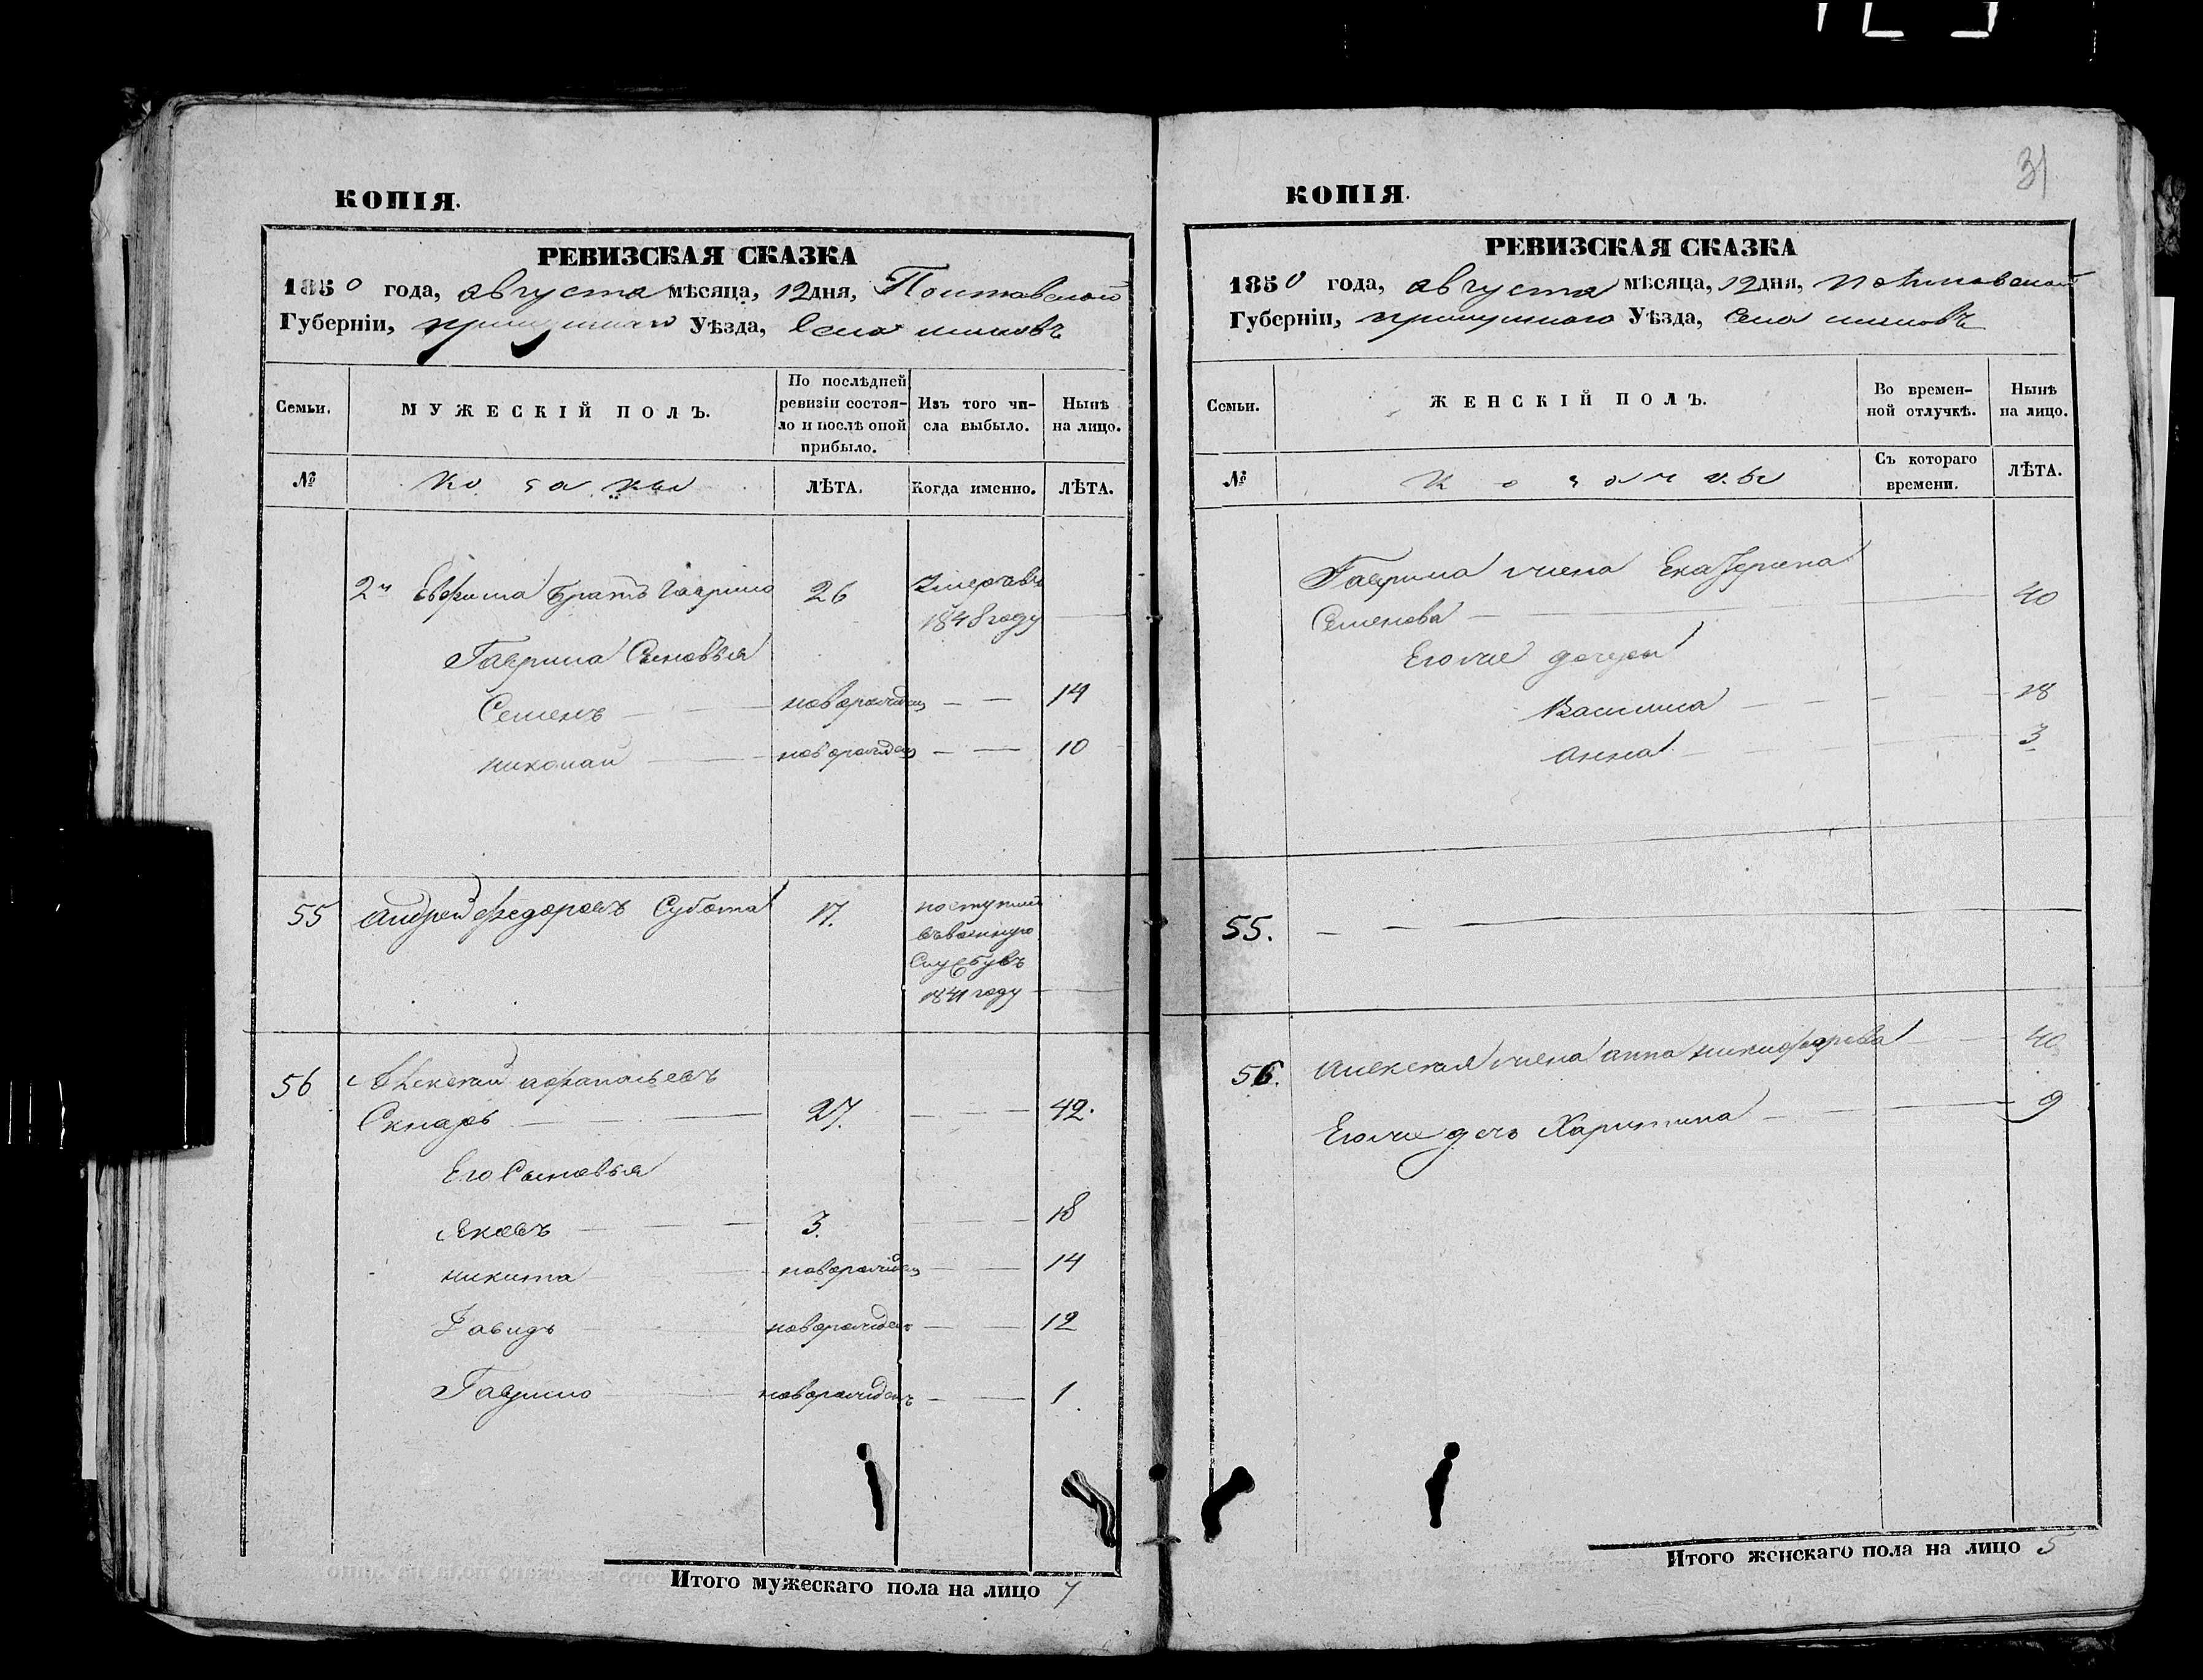 31
КОПІЯ.
РЕВИЗСКАЯ СКАЗКА
1850 года, августа мѣсяца, 12 дня, Полтавской
Губерніи, прилуцкаго Уѣзда, Села
Семьи.
МУЖЕСКІЙ ПОЛЪ.
По послѣдней ревизіи состоя-
ло и послѣ оной прибыло.
Изъ того чи-
сла выбыло.
Нынѣ
на лицо.
№
Козаки
ЛѢТА.
Когда именно.
ЛѢТА.
2й Евфима братъ Гаврило 26 Умеръ въ
1848 году
Гаврила Сыновья
Семенъ новорожден 14
николай новорожден 10
55 андрей федоровъ Субота 17. поступил
въ военную
Службу въ
1841 году
56 Алексей афанасьевъ
Скнарь 27. 42.
Его Сыновья
Яковъ 3. 18
никита новорожден 14
Давидъ новорожден 12
Гаврило новорожденъ 1
Итого мужескаго пола на лицо 7
КОПІЯ.
РЕВИЗСКАЯ СКАЗКА
1850 года, августа мѣсяца, 12 дня, полтавской
Губерніи, прилуцкаго Уѣзда, Села
Семьи.
ЖЕНСКІЙ ПОЛЪ.
Во времен-
ной отлучкѣ.
Нынѣ
на лицо.
№
Козачки
Съ котораго
времени.
ЛѢТА.
Гаврила жена Екатерина
Семенова 40
Его же дочери
Василиса 18
анна 3
55.
56. алексея жена анна никифорова 40
Его же дочь Харитина 9
Итого женскаго пола на лицо 5